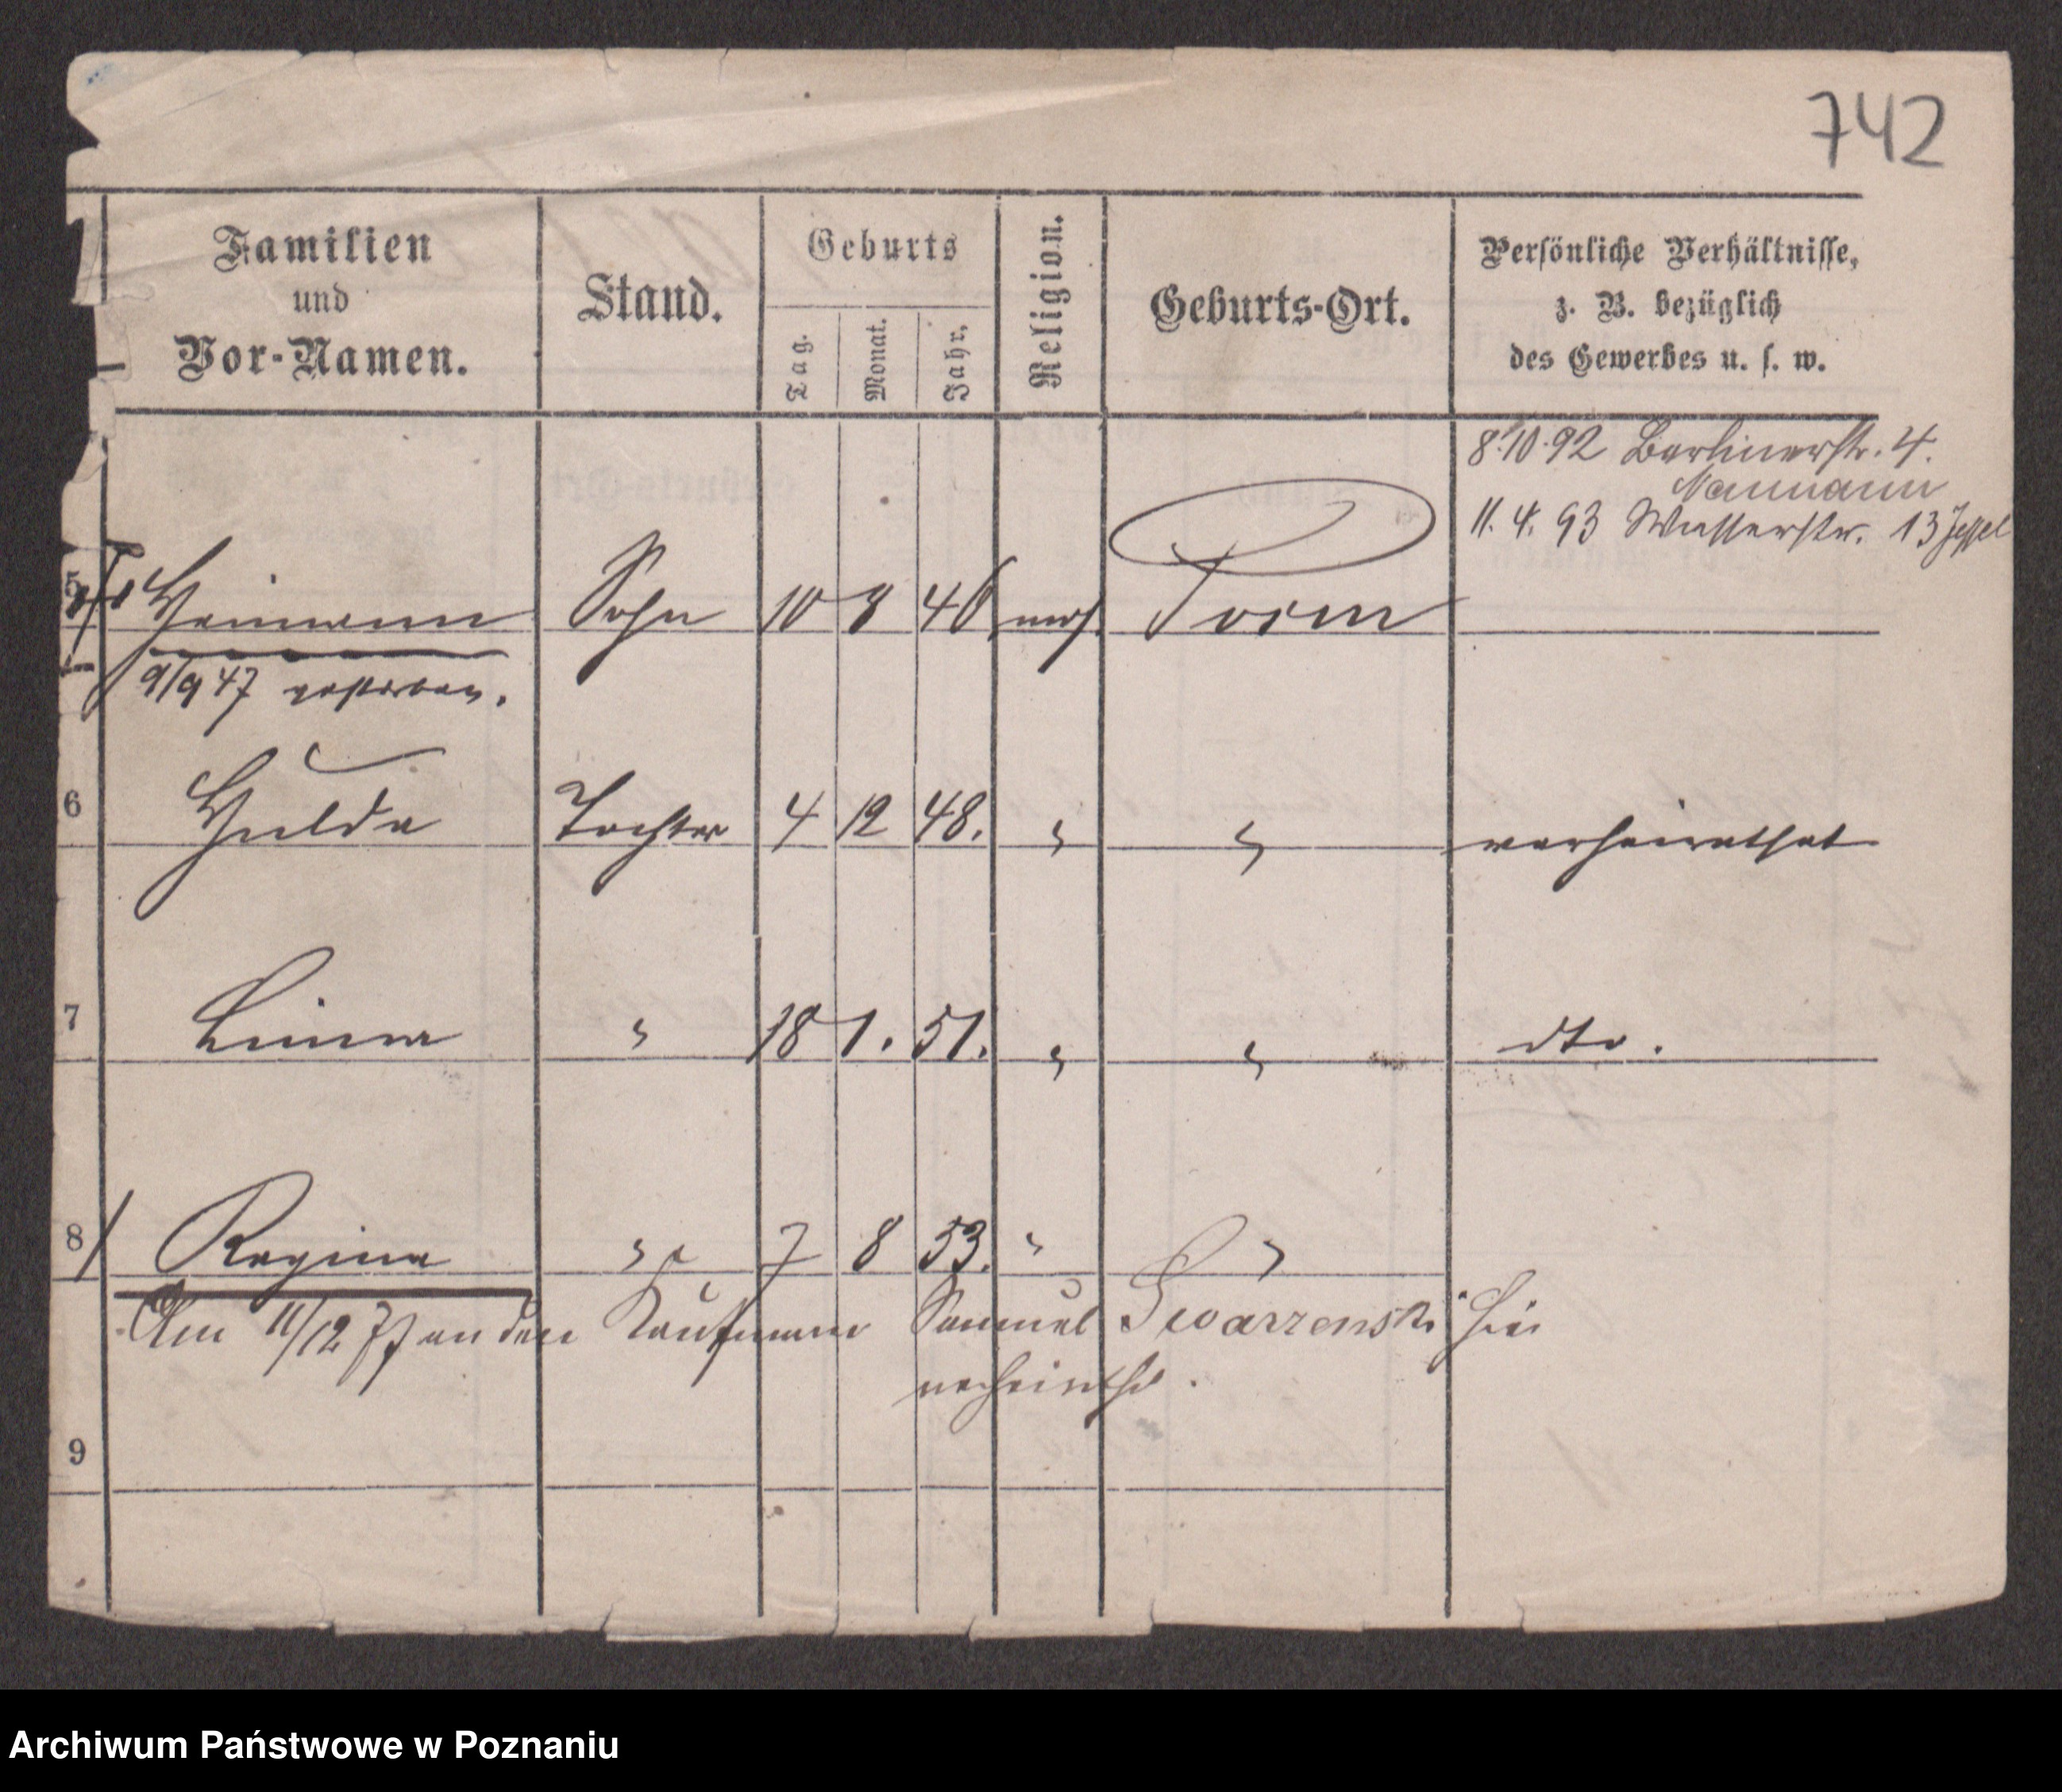 742
Familien und Vor-Namen.
Stand.
Geburts
Tag.
Monat.
Jahr.
Religion.
Geburts-Ort.
Persönliche Verhältnisse, z. B. bezüglich des Gewerbes u. s. w.
8.10.92 Berlinerstr. 4.
Naumann
11. 4. 93 Wasserstr. 13 Jessel
5 Heimann Sohn 10 8 46 mos. Posen
9/9 47 gestorben.
6 Hulda Tochter 4 12 48. " " verheirathet
7 Linna " 18 1. 51. " " dto.
8 Regina " 7 8 53. " "
Am 11/12 77 an den Kaufmann Samuel Swarzenski hier
verheirathet.
9
Archiwum Państwowe w Poznaniu